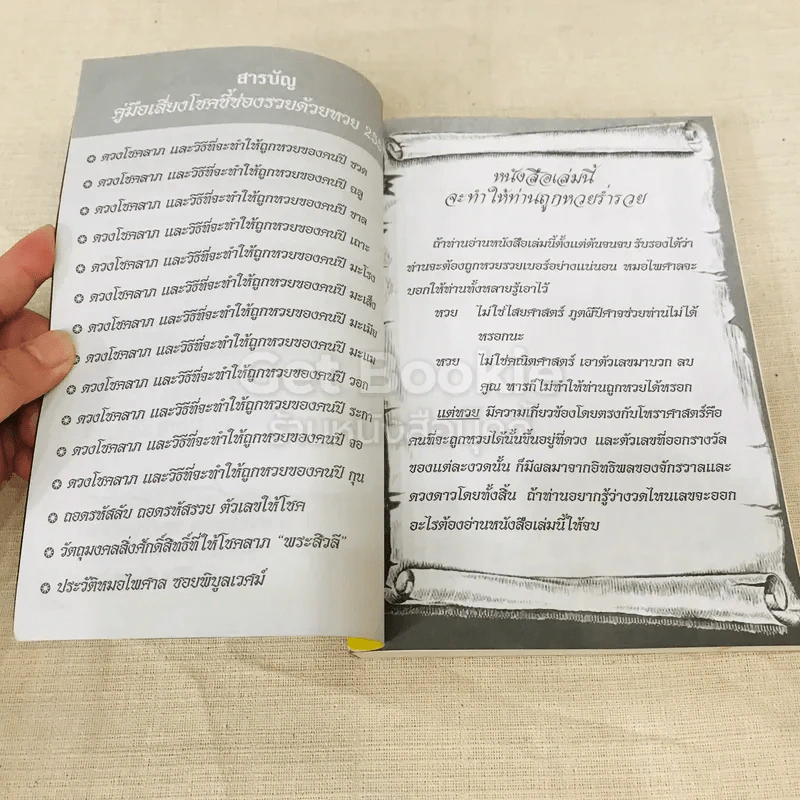 สารบัญ
คู่มือเสี่ยงโชคชี้ช่องรวยด้วยหวย
✪ ดวงโชคลาภ และวิธีที่จะทำให้ถูกหวยของคนปี ชวด
✪ ดวงโชคลาภ และวิธีที่จะทำให้ถูกหวยของคนปี ฉลู
✪ ดวงโชคลาภ และวิธีที่จะทำให้ถูกหวยของคนปี ขาล
✪ ดวงโชคลาภ และวิธีที่จะทำให้ถูกหวยของคนปี เถาะ
✪ ดวงโชคลาภ และวิธีที่จะทำให้ถูกหวยของคนปี มะโรง
✪ ดวงโชคลาภ และวิธีที่จะทำให้ถูกหวยของคนปี มะเส็ง
✪ ดวงโชคลาภ และวิธีที่จะทำให้ถูกหวยของคนปี มะเมีย
✪ ดวงโชคลาภ และวิธีที่จะทำให้ถูกหวยของคนปี มะแม
✪ ดวงโชคลาภ และวิธีที่จะทำให้ถูกหวยของคนปี วอก
✪ ดวงโชคลาภ และวิธีที่จะทำให้ถูกหวยของคนปี ระกา
✪ ดวงโชคลาภ และวิธีที่จะทำให้ถูกหวยของคนปี จอ
✪ ดวงโชคลาภ และวิธีที่จะทำให้ถูกหวยของคนปี กุน
✪ ถอดรหัสลับ ถอดรหัสรวย ตัวเลขให้โชค
✪ วัตถุมงคลสิ่งศักดิ์สิทธิ์ที่ให้โชคลาภ "พระสิวลี"
✪ ประวัติหมอไพศาล ซอยพิบูลเวศม์
หนังสือเล่มนี้
จะทำให้ท่านถูกหวยร่ำรวย
ถ้าท่านอ่านหนังสือเล่มนี้ตั้งแต่ต้นจนจบ รับรองได้ว่า
ท่านจะต้องถูกหวยรวยเบอร์อย่างแน่นอน หมอไพศาลจะ
บอกให้ท่านทั้งหลายรู้เอาไว้
หวย ไม่ใช่ไสยศาสตร์ ภูตผีปีศาจช่วยท่านไม่ได้
หรอกนะ
หวย ไม่ใช่คณิตศาสตร์ เอาตัวเลขมาบวก ลบ
คูณ หารก็ไม่ทำให้ท่านถูกหวยได้หรอก
แต่หวย มีความเกี่ยวข้องโดยตรงกับโหราศาสตร์คือ
คนที่จะถูกหวยได้นั้นขึ้นอยู่ที่ดวง และตัวเลขที่ออกรางวัล
ของแต่ละงวดนั้น ก็มีผลมาจากอิทธิพลของจักรวาลและ
ดวงดาวโดยทั้งสิ้น ถ้าท่านอยากรู้ว่างวดไหนเลขจะออก
อะไรต้องอ่านหนังสือเล่มนี้ให้จบ
Get Bookie